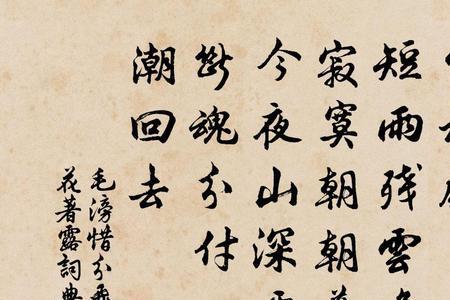 短雨残雲
寂寞朝朝
今夜山深
斷魂分付
潮回去
毛滂惜分飛
花著露詞典